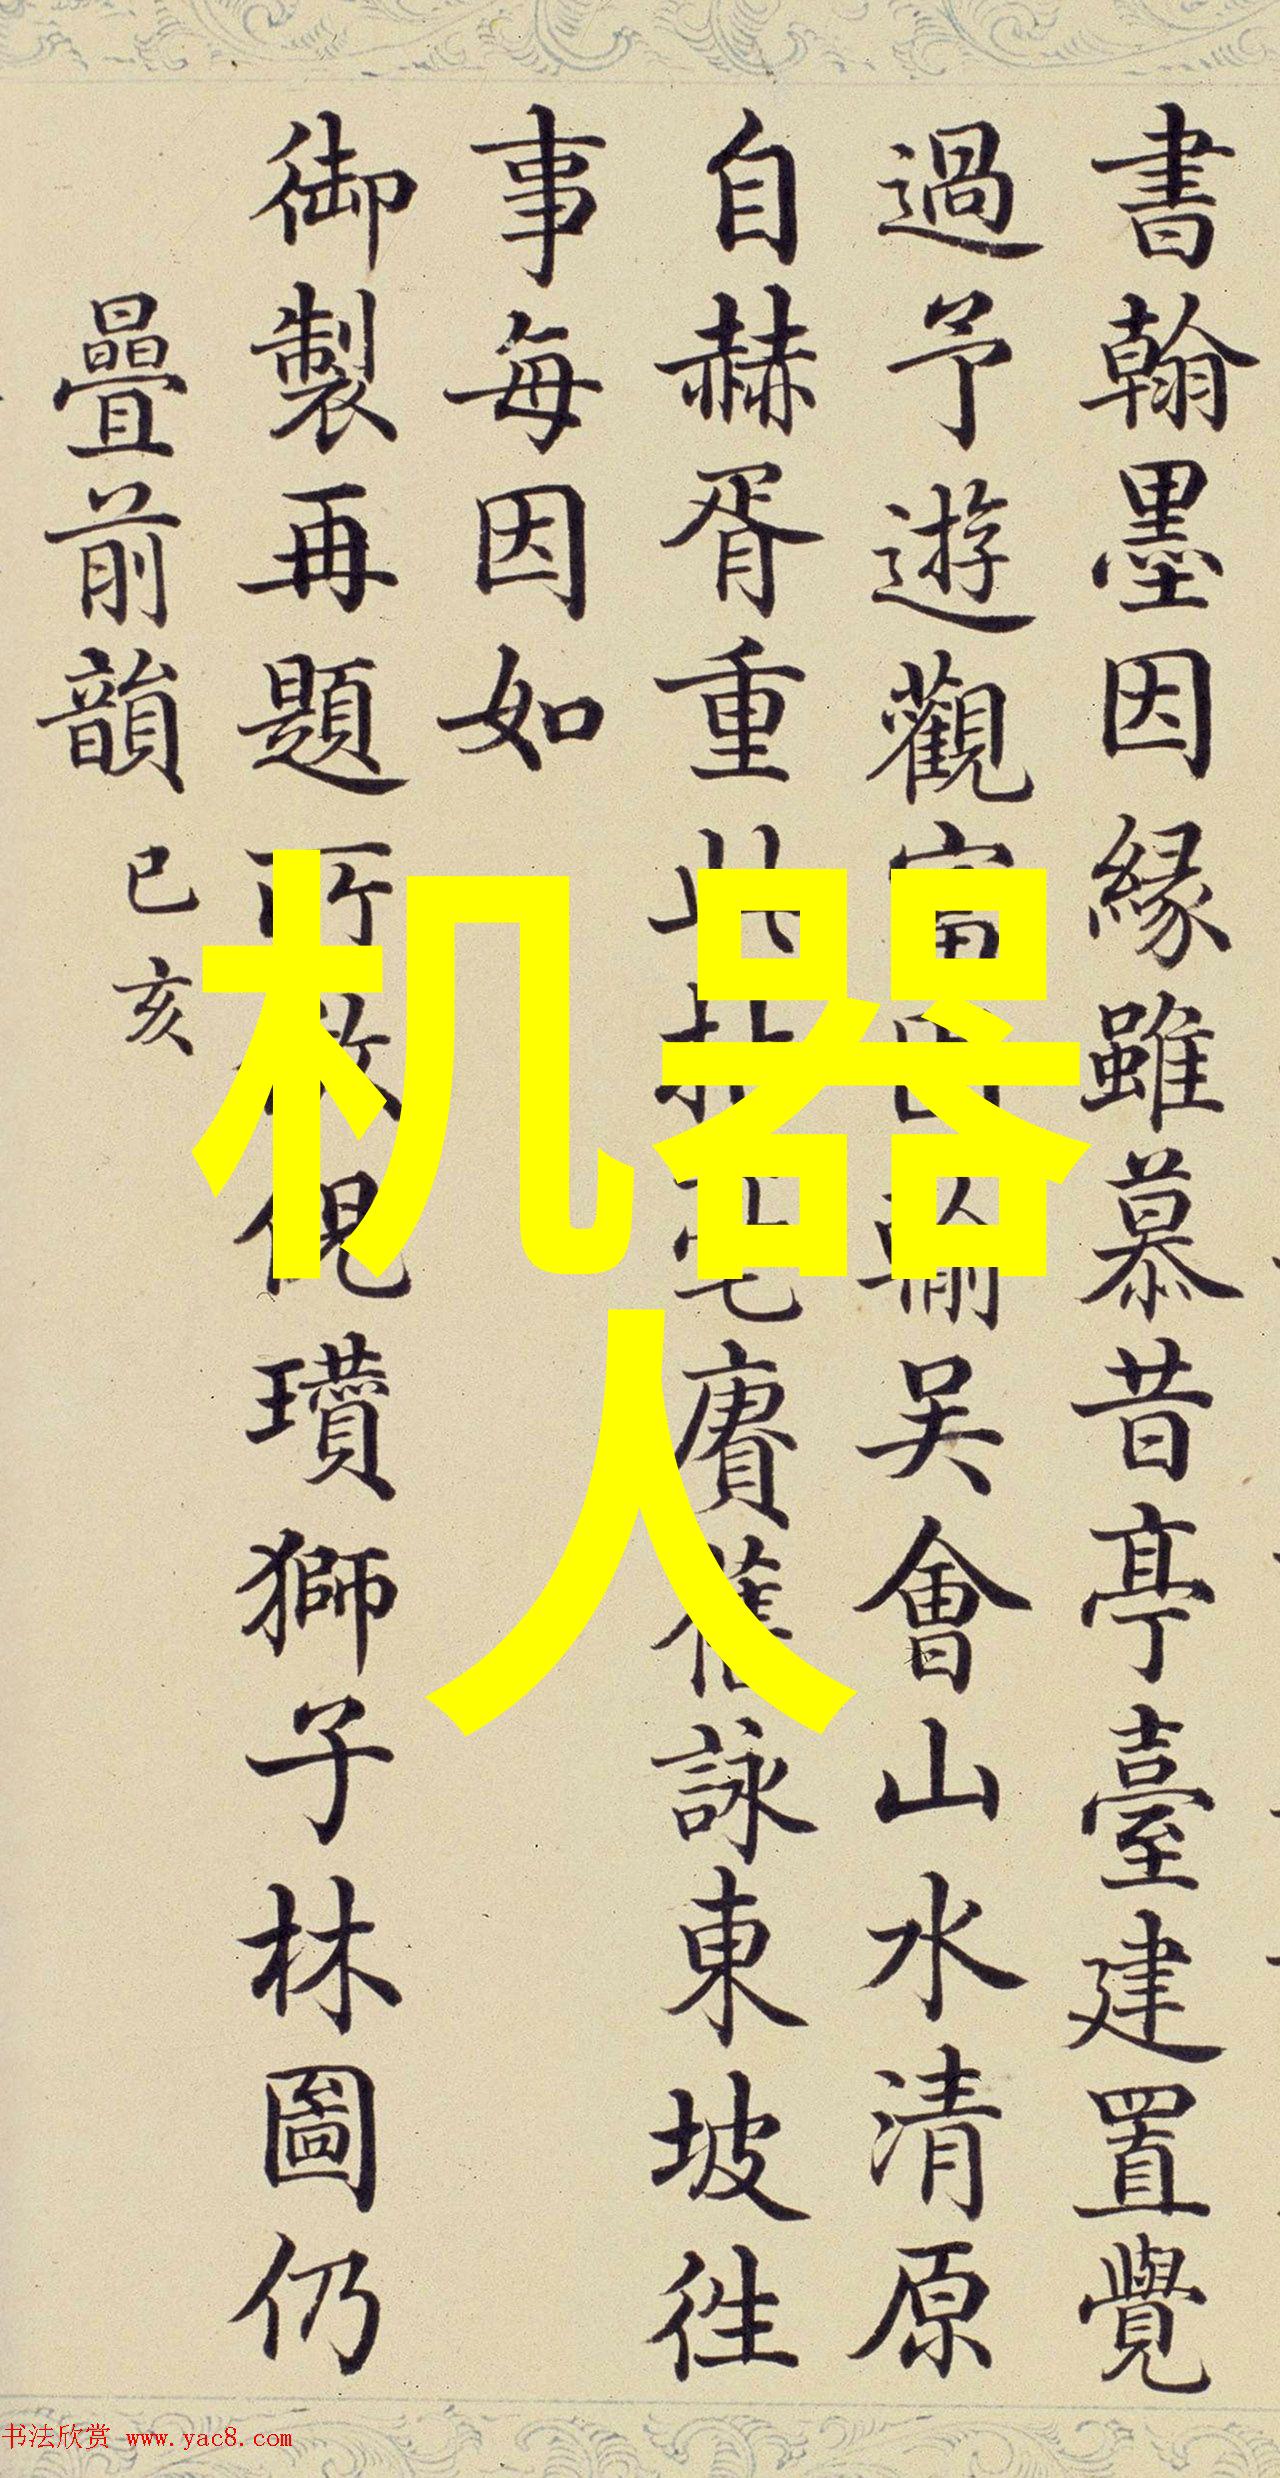 書翰墨因緣雖慕昔亭臺建置覺
過予遊觀輸吳會山水清原
自赫胥重此賡舊詠東坡徃
事每因如
御製再題所倣倪瓚獅子林圖仍
疊前韻 己亥
机器
人
书法欣赏 www.yac8.com